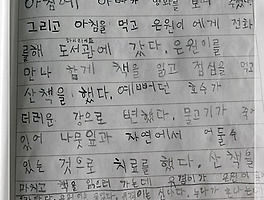 아침에 아빠가
그리고 아침을 먹고 은원이 에게 전화
를해 도서관에 갔다. 은원이를
만나 함께 책을 읽고 점심을 먹고
산책을 했다. 예뻐던 호수가
더러운 강으로 변했다. 물고기가 죽어
있어 나뭇잎과 자연에서 얻을수
있는 것으로 치료를 했다. 산책을
마치고 책을 읽으러 가는데